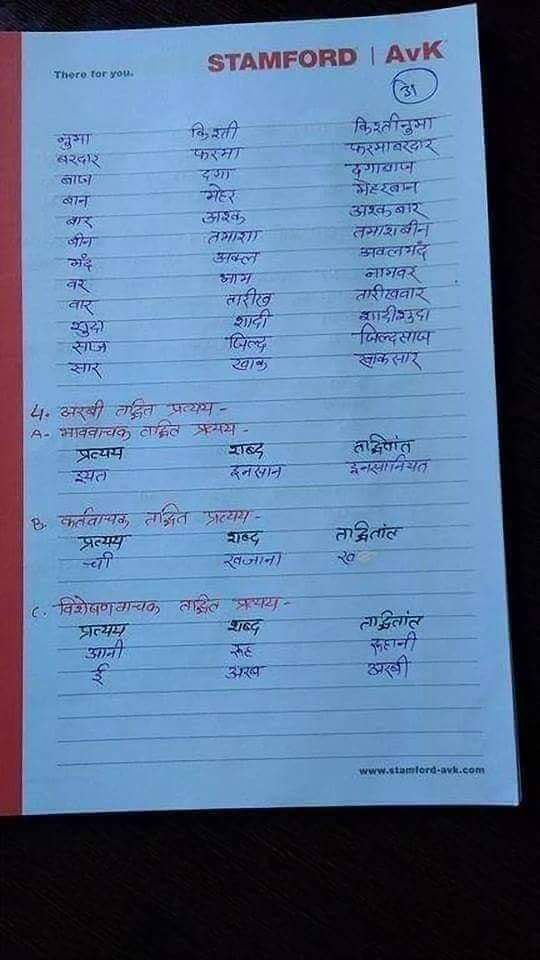 There for you. STAMFORD | AvK
31
नुमा किश्ती किश्तीनुमा
बरदार फरमा फरमाबरदार
बाज दगा दगाबाज
बान मेहर मेहरबान
बार अश्क अश्कबार
बीन तमाशा तमाशबीन
मँद अक्ल अक्लमँद
वर नाम नामवर
वार तारीख तारीखवार
शुदा शादी शादीशुदा
साज जिल्द जिल्दसाज
सार खाक खाकसार
4. अरबी तद्धित प्रत्यय -
A- भाववाचक तद्धित प्रत्यय -
प्रत्यय शब्द तद्धितांत
इयत इनसान इनसानियत
B. कर्तवाचक तद्धित प्रत्यय -
प्रत्यय शब्द तद्धितांत
ची खजाना ख
C. विशेषणवाचक तद्धित प्रत्यय -
प्रत्यय शब्द तद्धितांत
आनी रूह रूहानी
ई अरब अरबी
www.stamford-avk.com